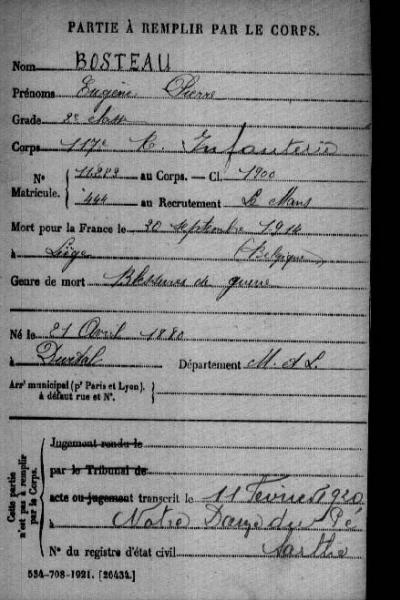 PARTIE À REMPLIR PAR LE CORPS.
Nom BOSTEAU
Prénoms Eugène Pierre
Grade 2e class
Corps 117e R. Infanterie
N° Matricule. { 14282 au Corps. — Cl. 1900
444 au Recrutement Le Mans
Mort pour la France le 20 septembre 1914
à Liège (Belgique)
Genre de mort Blessures de guerre
Né le 21 Avril 1880
à Durtal Département M. et L.
Arrt municipal (pr Paris et Lyon), à défaut rue et N°. }
Cette partie n'est pas à remplir par le Corps.
Jugement rendu le
par le Tribunal de
acte ou jugement transcrit le 11 Février 1920
à Notre Dame du Pé
Sarthe
N° du registre d'état civil
534-708-1921. [26434.]